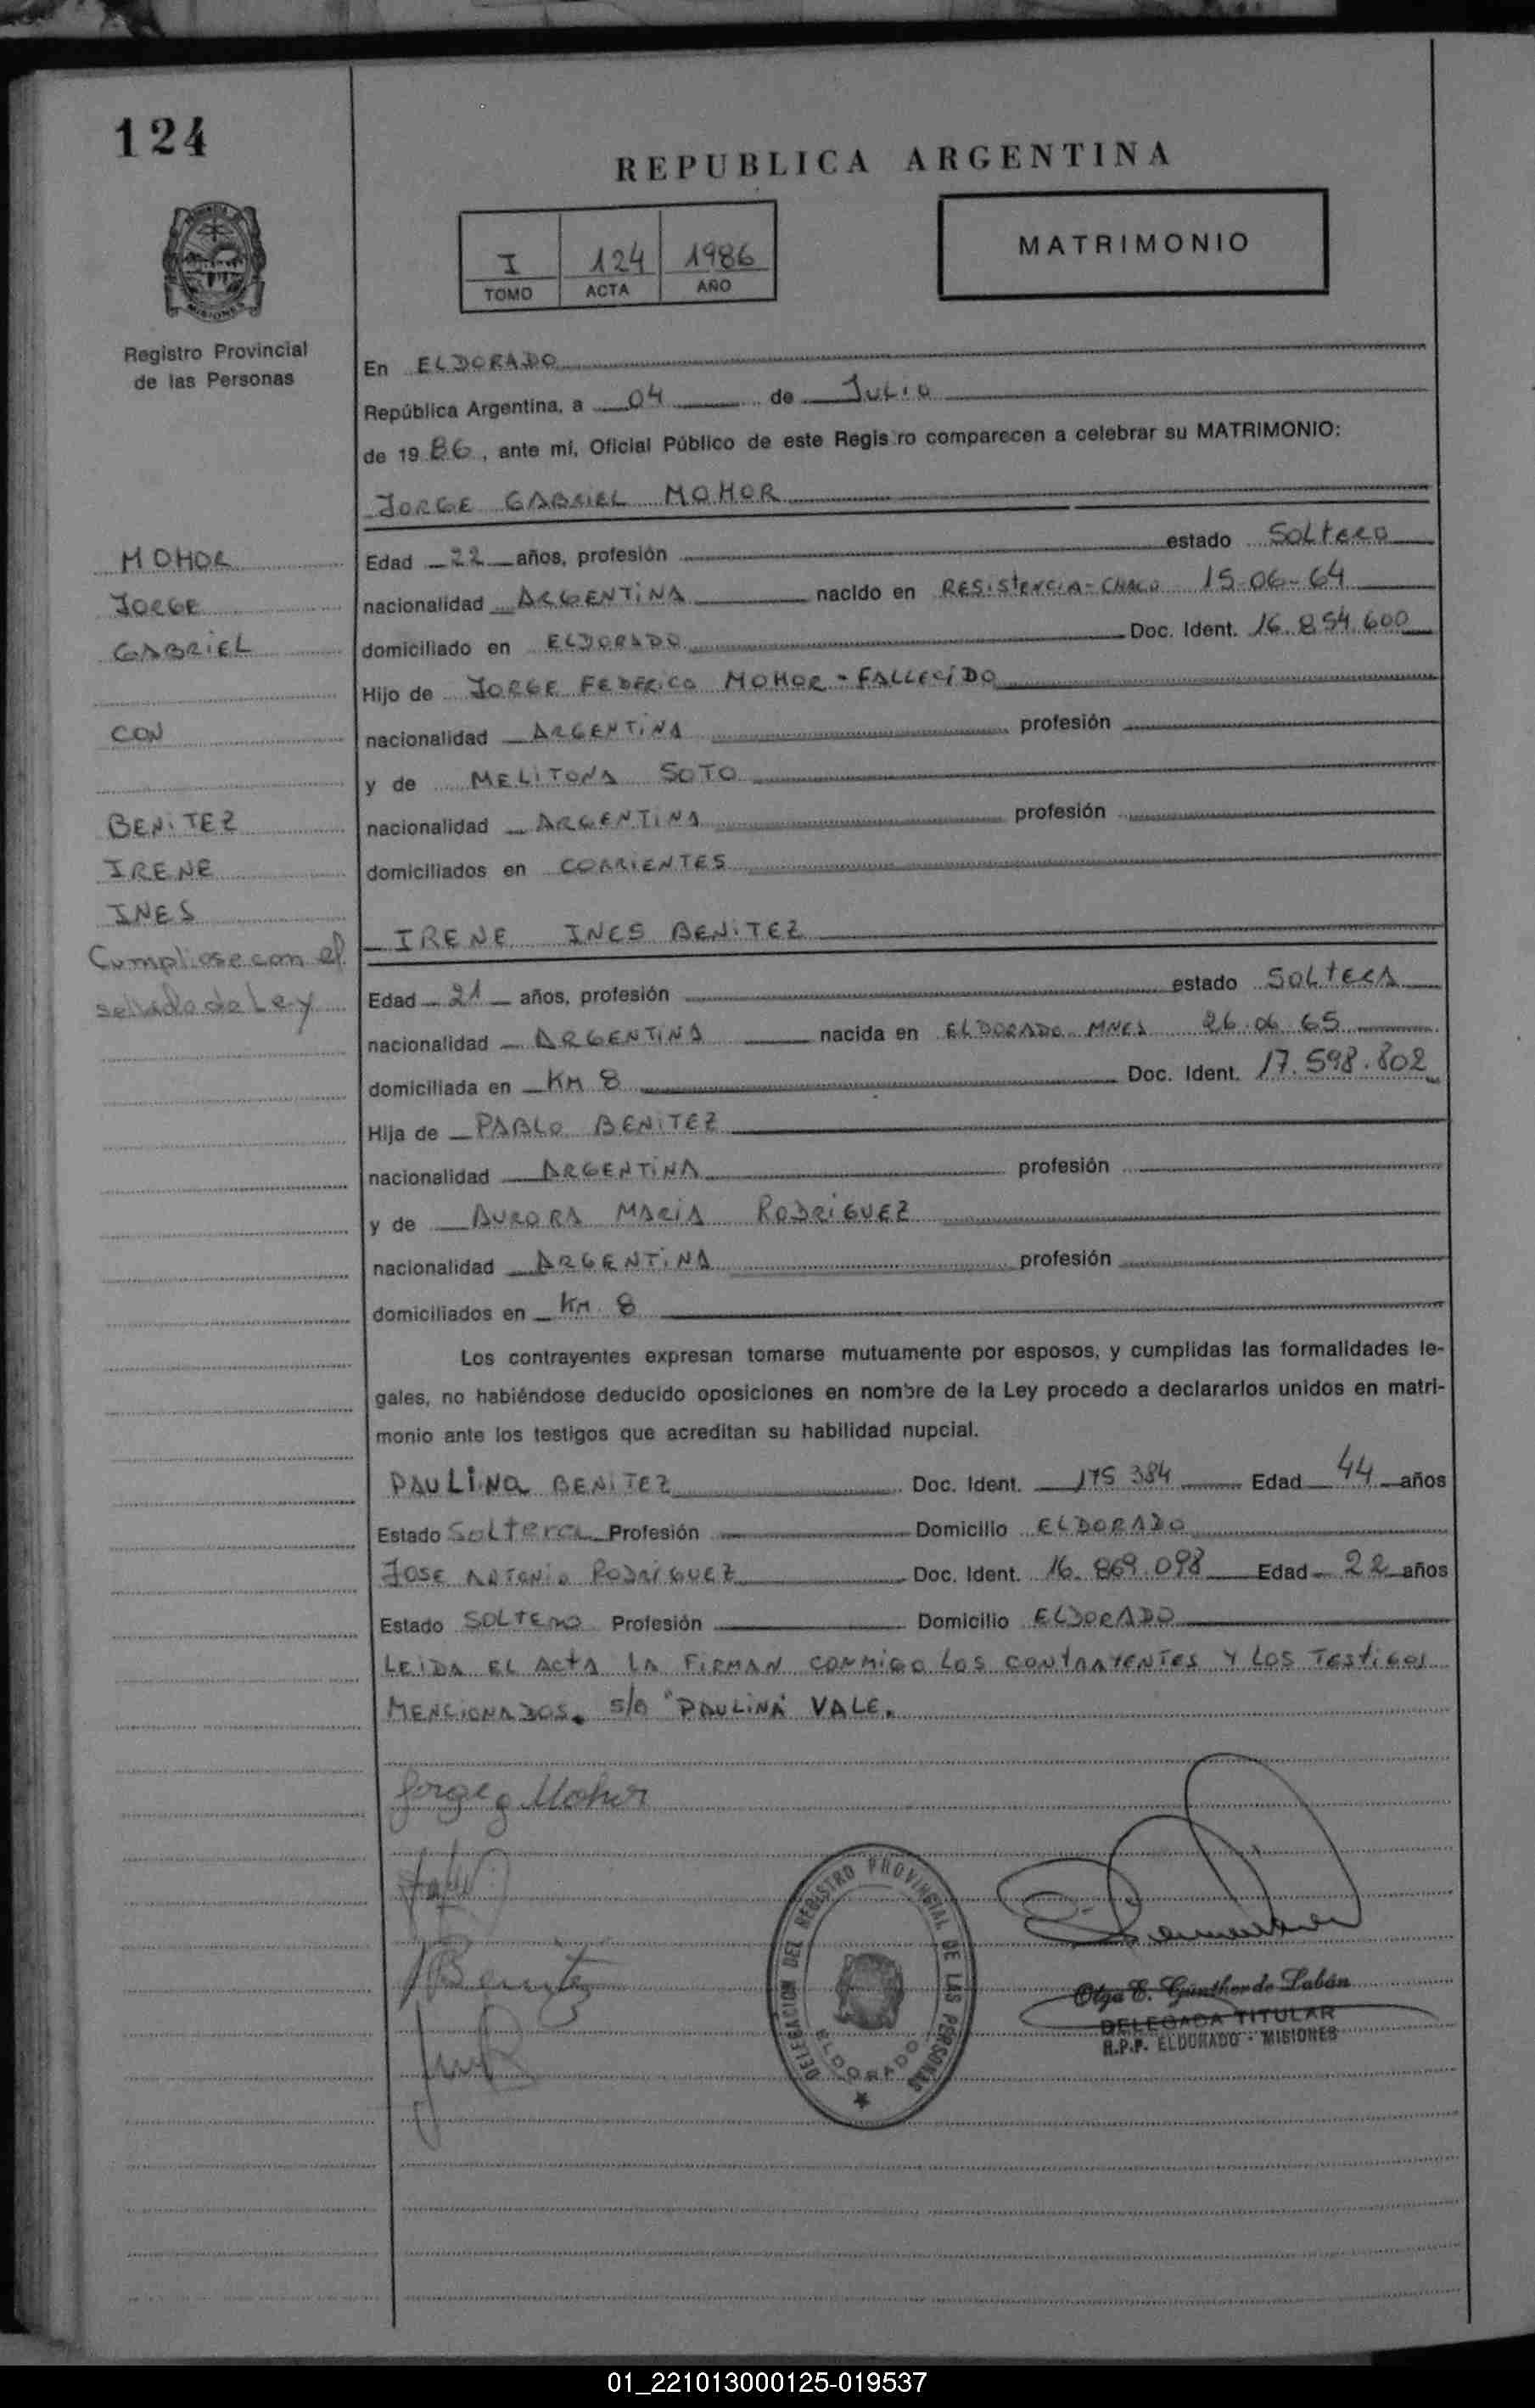 124
REPUBLICA ARGENTINA
I 124 1986
TOMO ACTA AÑO
MATRIMONIO
Registro Provincial
de las Personas
En ELDORADO
República Argentina, a 04 de JULIO
de 1986, ante mi, Oficial Público de este Regis ro comparecen a celebrar su MATRIMONIO:
JORGE GABRIEL MOHOR
MOHOR
JORGE
GABRIEL
CON
BENITEZ
IRENE
INES
Cumpliose con el
sellado de Ley
Edad 22 años, profesión estado SOLTERO
nacionalidad ARGENTINA nacido en RESISTENCIA-CHACO 15-06-64
domiciliado en ELDORADO Doc. Ident. 16.854.600
Hijo de JORGE FEDERICO MOHOR - FALLECIDO
nacionalidad ARGENTINA profesión
y de MELITONA SOTO
nacionalidad ARGENTINA profesión
domiciliados en CORRIENTES
IRENE INES BENITEZ
Edad 21 años, profesión estado SOLTERA
nacionalidad ARGENTINA nacida en ELDORADO MNES 26.06.65
domiciliada en KM 8 Doc. Ident. 17.598.802
Hija de PABLO BENITEZ
nacionalidad ARGENTINA profesión
y de AURORA MARIA RODRIGUEZ
nacionalidad ARGENTINA profesión
domiciliados en KM. 8
Los contrayentes expresan tomarse mutuamente por esposos, y cumplidas las formalidades le-
gales, no habiéndose deducido oposiciones en nombre de la Ley procedo a declararlos unidos en matri-
monio ante los testigos que acreditan su habilidad nupcial.
PAULINA BENITEZ Doc. Ident. 175 384 Edad 44 años
Estado Soltera Profesión Domicilio ELDORADO
JOSE ANTONIO RODRIGUEZ Doc. Ident. 16.869.098 Edad 22 años
Estado SOLTERO Profesión Domicilio ELDORADO
LEIDA EL ACTA LA FIRMAN CONMIGO LOS CONTRAYENTES Y LOS TESTIGOS
MENCIONADOS. S/B "PAULINA" VALE.
Jorge g Mohor
Benitez
DELEGACION DEL REGISTRO PROVINCIAL DE LAS PERSONAS
ELDORADO
Olga E. Günther de Labán
DELEGADA TITULAR
R.P.P. ELDORADO - MISIONES
01_221013000125-019537